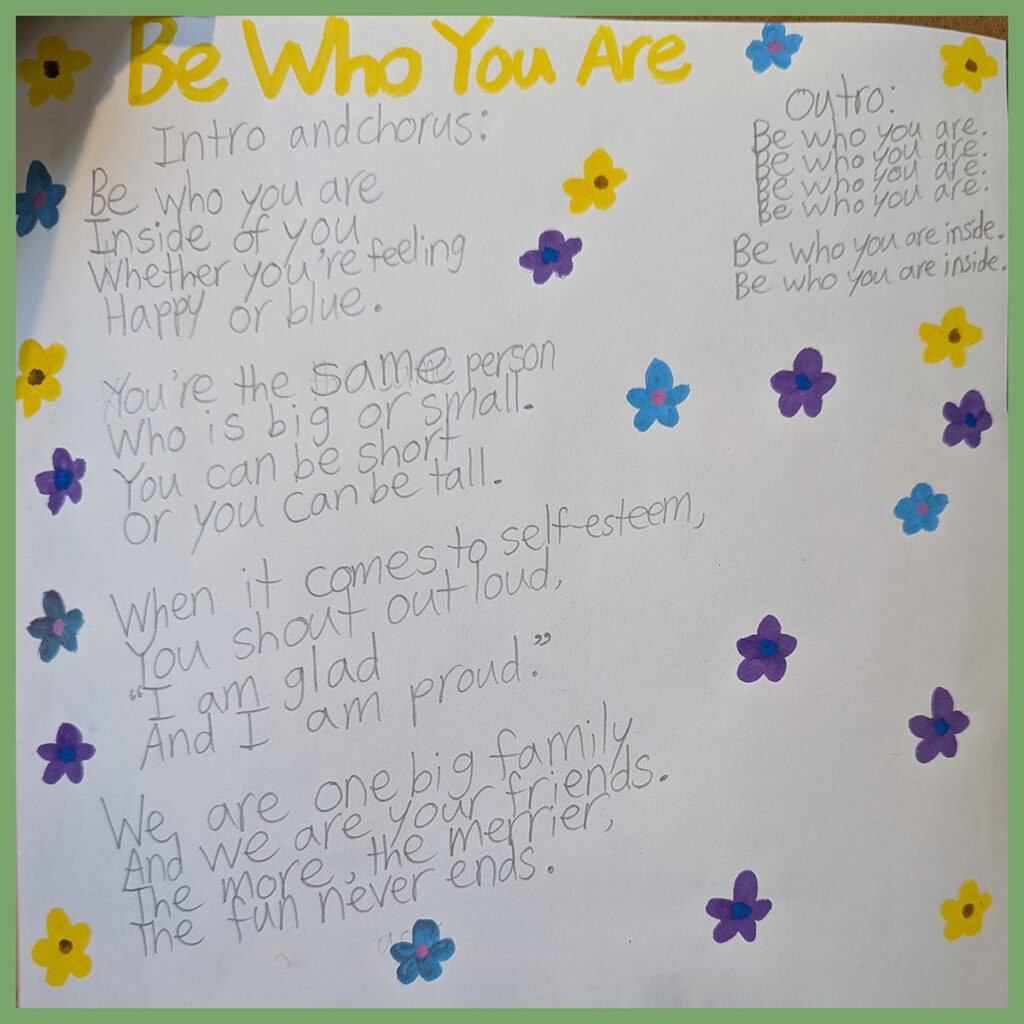 Be Who You Are
Intro and chorus:
Be who you are
Inside of you
Whether you're feeling
Happy or blue.
You're the same person
Who is big or small.
You can be short
Or you can be tall.
When it comes to self-esteem,
You shout out loud,
"I am glad
And I am proud."
We are one big family
And we are your friends.
The more, the merrier,
The fun never ends.
Outro:
Be who you are.
Be who you are.
Be who you are.
Be who you are.
Be who you are inside.
Be who you are inside.